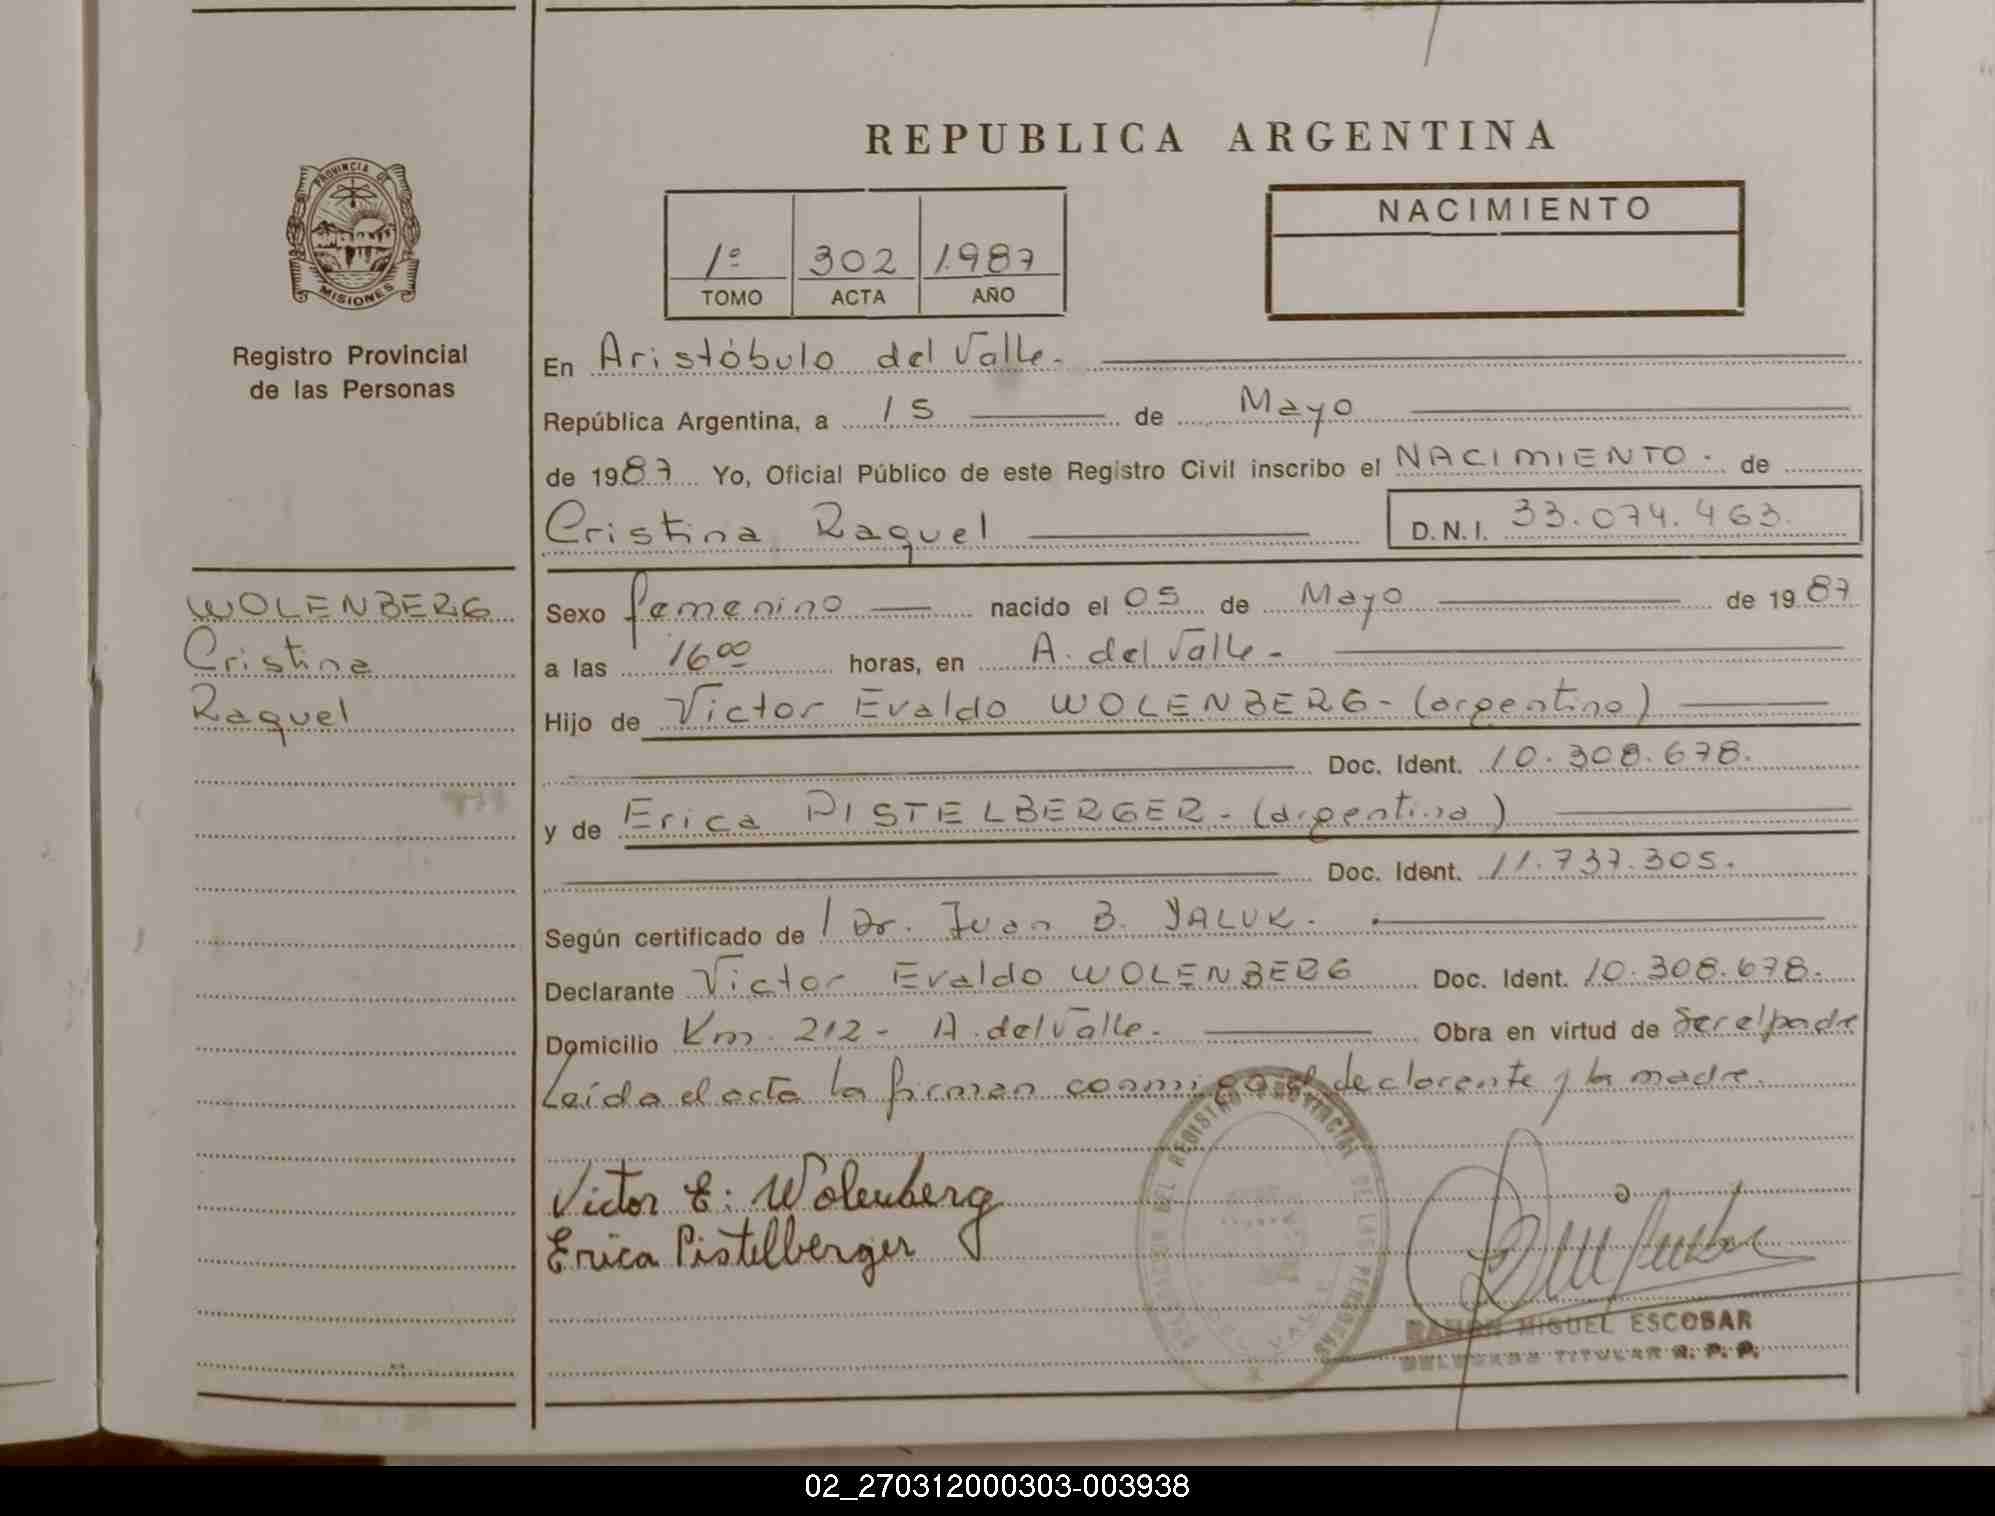 REPUBLICA ARGENTINA
PROVINCIA DE
MISIONES
Registro Provincial
de las Personas
1º 302 1987
TOMO ACTA AÑO
NACIMIENTO
En Aristóbulo del Valle.
República Argentina, a 15 de Mayo
de 1987 Yo, Oficial Público de este Registro Civil inscribo el NACIMIENTO. de
Cristina Raquel D.N.I. 33.074.463.
WOLENBERG
Cristina
Raquel
Sexo femenino nacido el 05 de Mayo de 1987
a las 16 00 horas, en A. del Valle.
Hijo de Victor Evaldo WOLENBERG - (argentino)
Doc. Ident. 10.308.678.
y de Erica PISTELBERGER - (argentina)
Doc. Ident. 11.737.305.
Según certificado de / Dr. Juan B. YALUK.
Declarante Victor Evaldo WOLENBERG Doc. Ident. 10.308.678.
Domicilio Km. 212 - A. del Valle. Obra en virtud de Ser el padre
Leída el acta la firman conmigo el declarante y la madre.
Victor E. Wolenberg
Erica Pistelberger
DEL REGISTRO PROVINCIAL DE LAS PERSONAS
RAMON MIGUEL ESCOBAR
DELEGADO TITULAR R. P. P.
02_270312000303-003938